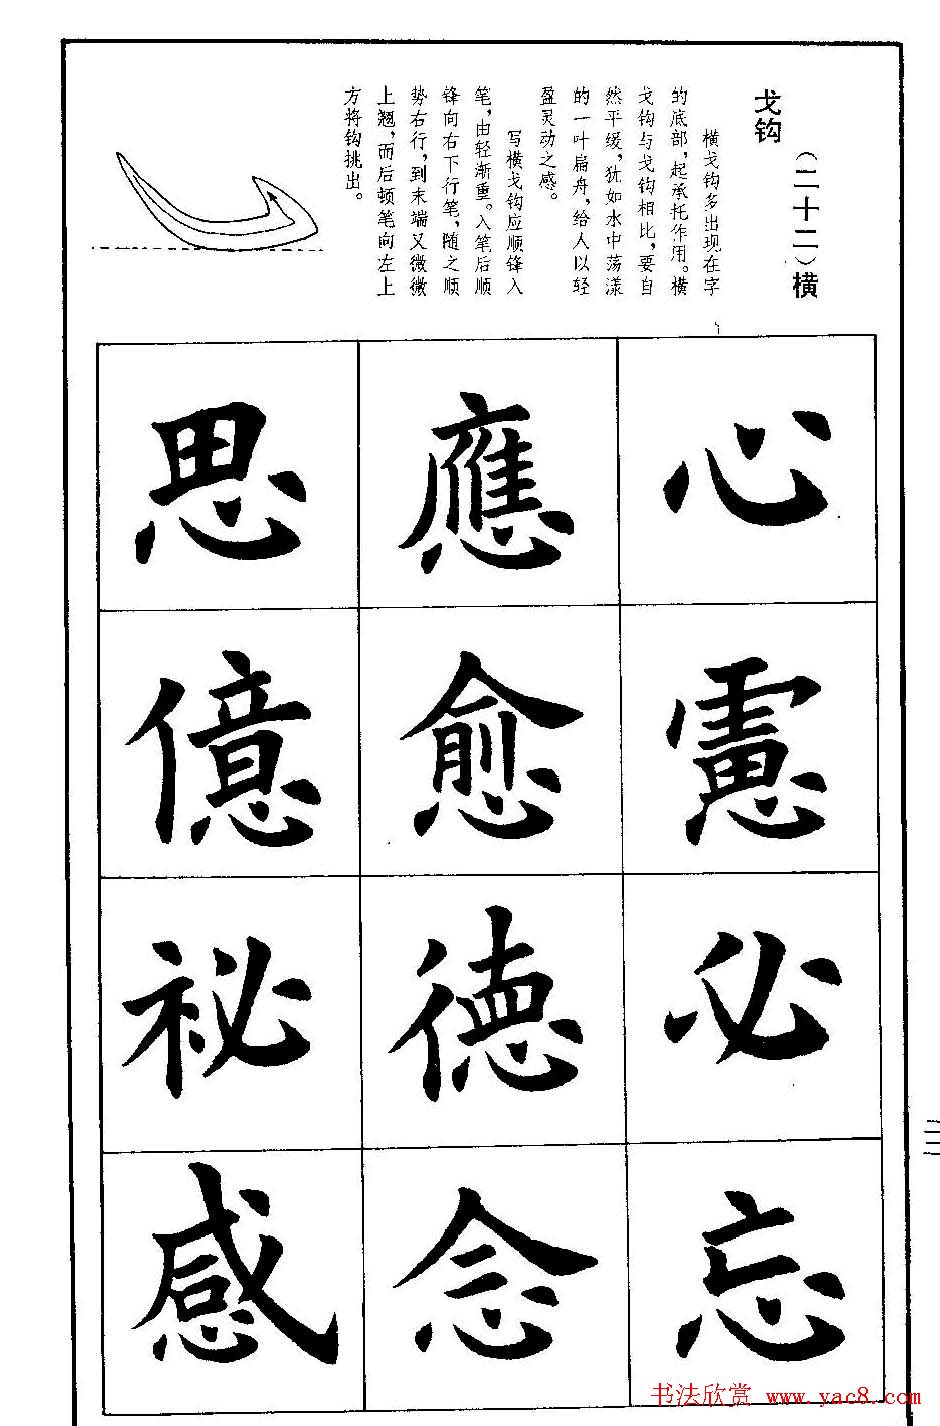 （二十二）横
戈钩
横戈钩多出现在字
的底部，起承托作用。横
戈钩与戈钩相比，要自
然平缓，犹如水中荡漾
的一叶扁舟，给人以轻
盈灵动之感。
写横戈钩应顺锋入
笔，由轻渐重。入笔后顺
锋向右下行笔，随之顺
势右行，到末端又微微
上翘，而后顿笔向左上
方将钩挑出。
心慮必忘
應愈徳念
思億祕感
书法欣赏 www.yac8.com